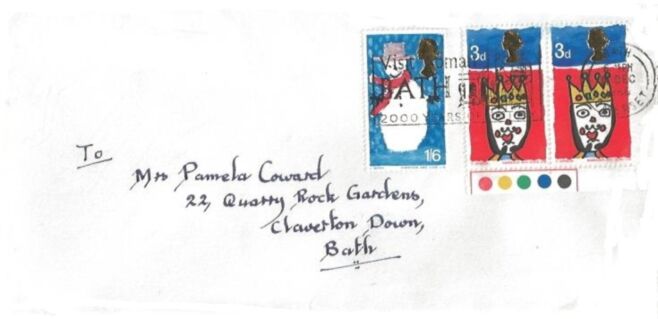 3d
3d
Visit
BATH
2000 YEARS OF
DEC
1/6
To
Mrs Pamela Coward
22, Quarry Rock Gardens,
Claverton Down,
Bath